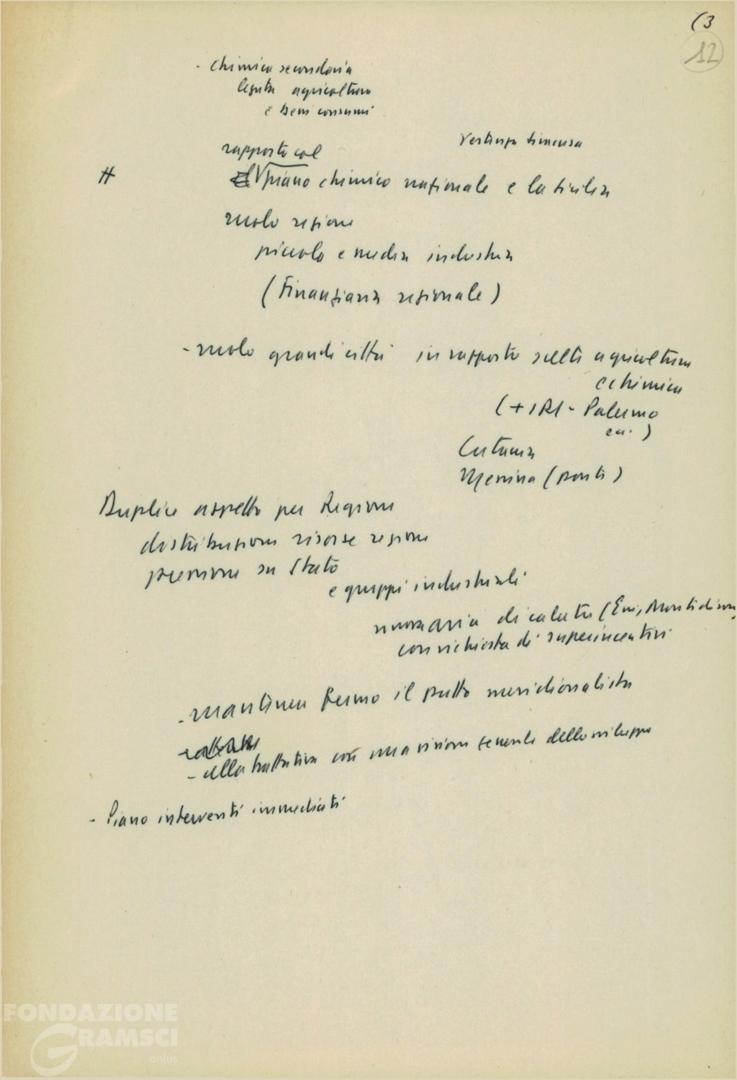 (3
12
- chimica secondaria
legata agricoltura
e beni consumi
rapporto col
# piano chimico nazionale e la sicilia
ruolo regione
piccola e media industria
(Finanziaria regionale)
- ruolo grandi città in rapporto scelte agricoltura
e chimica
(+ IRI - Palermo
ecc.)
Catania
Messina (ponte)
Duplice aspetto per Regione
distribuzione risorse regione
pressione su Stato
e gruppi industriali
di calata (Eni, Montedison,
con richiesta di superincentivi
- mantenere fermo il patto meridionalista
- alla trattativa con una visione generale dello sviluppo
- Piano interventi immediati
FONDAZIONE
GRAMSCI
onlus